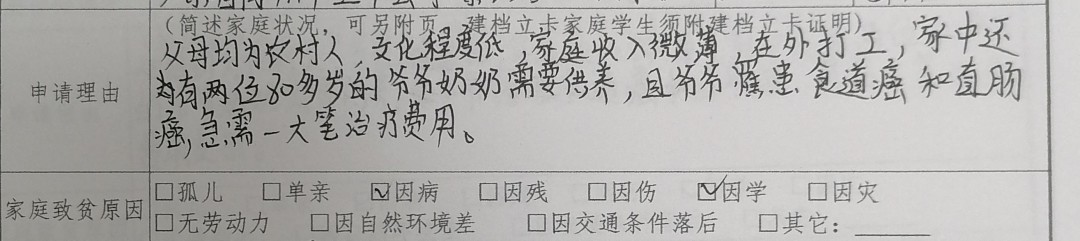 (简述家庭状况，可另附页，建档立卡家庭学生须附建档立卡证明)
父母均为农村人，文化程度低，家庭收入微薄，在外打工，家中还
申请理由
有两位80多岁的爷爷奶奶需要供养，且爷爷罹患食道癌和直肠
癌，急需一大笔治疗费用。
家庭致贫原因
□孤儿 □单亲 ☑因病 □因残 □因伤 ☑因学 □因灾
□无劳动力 □因自然环境差 □因交通条件落后 □其它：______